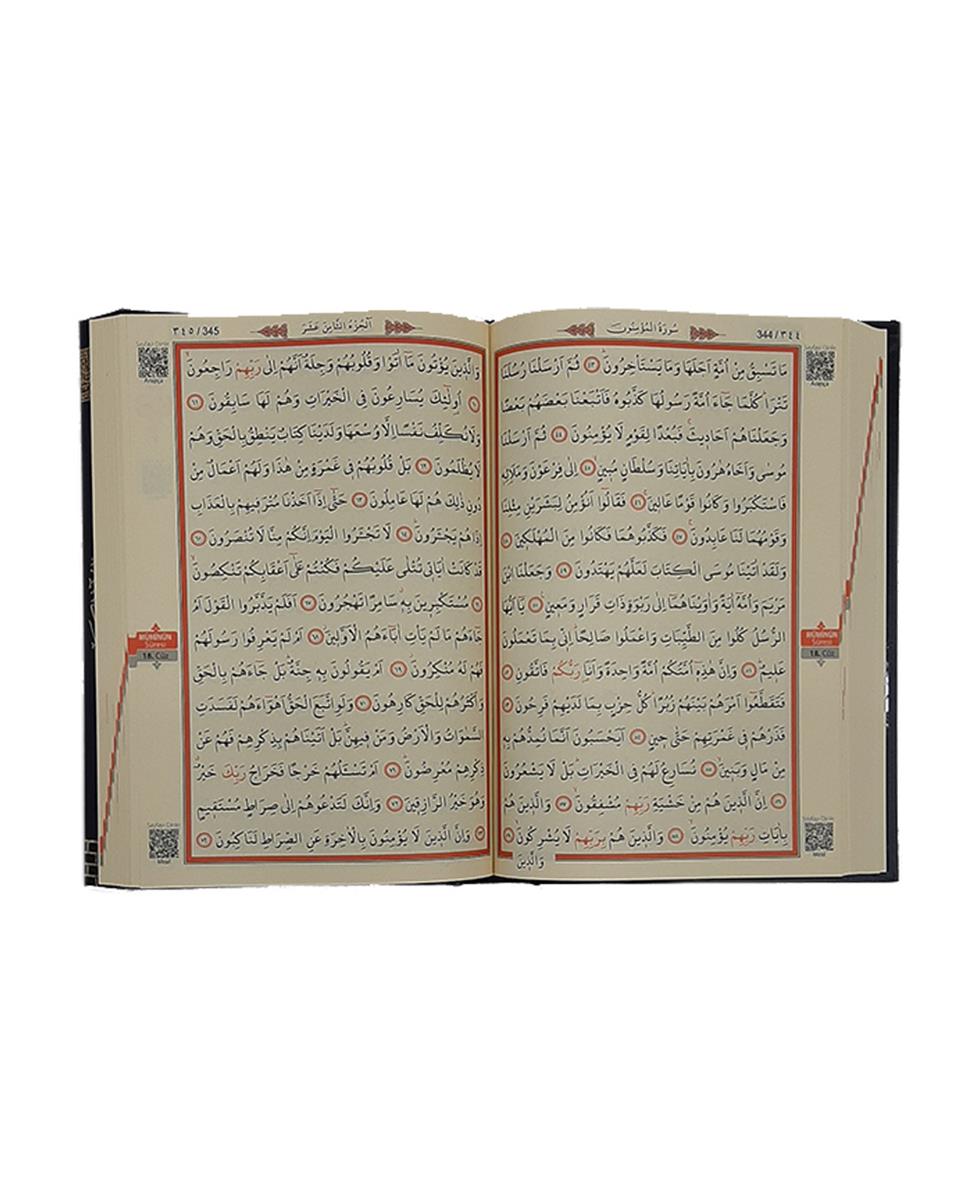 سُورَةُ الْمُؤْمِنُونَ
344 / ٣٤٤
مَا تَسْبِقُ مِنْ اُمَّةٍ اَجَلَهَا وَمَا يَسْتَأْخِرُونَۜ ﴿٤٣﴾ ثُمَّ اَرْسَلْنَا رُسُلَنَا
تَتْرَاۜ كُلَّمَا جَٓاءَ اُمَّةً رَسُولُهَا كَذَّبُوهُ فَاَتْبَعْنَا بَعْضَهُمْ بَعْضًا
وَجَعَلْنَاهُمْ اَحَاد۪يثَۚ فَبُعْدًا لِقَوْمٍ لَا يُؤْمِنُونَ ﴿٤٤﴾ ثُمَّ اَرْسَلْنَا
مُوسٰى وَاَخَاهُ هٰرُونَ بِاٰيَاتِنَا وَسُلْطَانٍ مُب۪ينٍۙ ﴿٤٥﴾ اِلٰى فِرْعَوْنَ وَمَلَا۬ئِه۪
فَاسْتَكْبَرُوا وَكَانُوا قَوْمًا عَال۪ينَۚ ﴿٤٦﴾ فَقَالُٓوا اَنُؤْمِنُ لِبَشَرَيْنِ مِثْلِنَا
وَقَوْمُهُمَا لَنَا عَابِدُونَۚ ﴿٤٧﴾ فَكَذَّبُوهُمَا فَكَانُوا مِنَ الْمُهْلَك۪ينَ ﴿٤٨﴾
وَلَقَدْ اٰتَيْنَا مُوسَى الْكِتَابَ لَعَلَّهُمْ يَهْتَدُونَ ﴿٤٩﴾ وَجَعَلْنَا ابْنَ
مَرْيَمَ وَاُمَّهُٓ اٰيَةً وَاٰوَيْنَاهُمَٓا اِلٰى رَبْوَةٍ ذَاتِ قَرَارٍ وَمَع۪ينٍ۟ ﴿٥٠﴾ يَٓا اَيُّهَا
الرُّسُلُ كُلُوا مِنَ الطَّيِّبَاتِ وَاعْمَلُوا صَالِحًاۜ اِنّ۪ي بِمَا تَعْمَلُونَ
عَل۪يمٌۜ ﴿٥١﴾ وَاِنَّ هٰذِه۪ٓ اُمَّتُكُمْ اُمَّةً وَاحِدَةً وَاَنَا۬ رَبُّكُمْ فَاتَّقُونِ ﴿٥٢﴾
فَتَقَطَّعُٓوا اَمْرَهُمْ بَيْنَهُمْ زُبُرًاۜ كُلُّ حِزْبٍ بِمَا لَدَيْهِمْ فَرِحُونَ ﴿٥٣﴾
فَذَرْهُمْ ف۪ي غَمْرَتِهِمْ حَتّٰى ح۪ينٍ ﴿٥٤﴾ اَيَحْسَبُونَ اَنَّمَا نُمِدُّهُمْ بِه۪
مِنْ مَالٍ وَبَن۪ينَۙ ﴿٥٥﴾ نُسَارِعُ لَهُمْ فِي الْخَيْرَاتِۜ بَلْ لَا يَشْعُرُونَ
﴿٥٦﴾ اِنَّ الَّذ۪ينَ هُمْ مِنْ خَشْيَةِ رَبِّهِمْ مُشْفِقُونَۙ ﴿٥٧﴾ وَالَّذ۪ينَ هُمْ
بِاٰيَاتِ رَبِّهِمْ يُؤْمِنُونَۙ ﴿٥٨﴾ وَالَّذ۪ينَ هُمْ بِرَبِّهِمْ لَا يُشْرِكُونَۙ ﴿٥٩﴾
وَالَّذ۪ينَ
Arapça
MÜMİNÛN
Sûresi
18. Cüz
Meal
اَلْجُزْءُ الثَّامِنَ عَشَرَ
٣٤٥ / 345
وَالَّذ۪ينَ يُؤْتُونَ مَٓا اٰتَوْا وَقُلُوبُهُمْ وَجِلَةٌ اَنَّهُمْ اِلٰى رَبِّهِمْ رَاجِعُونَۙ
﴿٦٠﴾ اُو۬لٰٓئِكَ يُسَارِعُونَ فِي الْخَيْرَاتِ وَهُمْ لَهَا سَابِقُونَ ﴿٦١﴾
وَلَا نُكَلِّفُ نَفْسًا اِلَّا وُسْعَهَا وَلَدَيْنَا كِتَابٌ يَنْطِقُ بِالْحَقِّ وَهُمْ
لَا يُظْلَمُونَ ﴿٦٢﴾ بَلْ قُلُوبُهُمْ ف۪ي غَمْرَةٍ مِنْ هٰذَا وَلَهُمْ اَعْمَالٌ مِنْ
دُونِ ذٰلِكَ هُمْ لَهَا عَامِلُونَ ﴿٦٣﴾ حَتّٰٓى اِذَٓا اَخَذْنَا مُتْرَف۪يهِمْ بِالْعَذَابِ
اِذَا هُمْ يَجْـَٔرُونَۜ ﴿٦٤﴾ لَا تَجْـَٔرُوا الْيَوْمَ اِنَّكُمْ مِنَّا لَا تُنْصَرُونَ ﴿٦٥﴾
قَدْ كَانَتْ اٰيَات۪ي تُتْلٰى عَلَيْكُمْ فَكُنْتُمْ عَلٰٓى اَعْقَابِكُمْ تَنْكِصُونَۙ
﴿٦٦﴾ مُسْتَكْبِر۪ينَ بِه۪ۗ سَامِرًا تَهْجُرُونَ ﴿٦٧﴾ اَفَلَمْ يَدَّبَّرُوا الْقَوْلَ اَمْ
جَٓاءَهُمْ مَا لَمْ يَأْتِ اٰبَٓاءَهُمُ الْاَوَّل۪ينَۘ ﴿٦٨﴾ اَمْ لَمْ يَعْرِفُوا رَسُولَهُمْ
فَهُمْ لَهُ مُنْكِرُونَۘ ﴿٦٩﴾ اَمْ يَقُولُونَ بِه۪ جِنَّةٌۜ بَلْ جَٓاءَهُمْ بِالْحَقِّ
وَاَكْثَرُهُمْ لِلْحَقِّ كَارِهُونَ ﴿٧٠﴾ وَلَوِ اتَّبَعَ الْحَقُّ اَهْوَٓاءَهُمْ لَفَسَدَتِ
السَّمٰوَاتُ وَالْاَرْضُ وَمَنْ ف۪يهِنَّۜ بَلْ اَتَيْنَاهُمْ بِذِكْرِهِمْ فَهُمْ عَنْ
ذِكْرِهِمْ مُعْرِضُونَۜ ﴿٧١﴾ اَمْ تَسْـَٔلُهُمْ خَرْجًا فَخَرَاجُ رَبِّكَ خَيْرٌۗ
وَهُوَ خَيْرُ الرَّازِق۪ينَ ﴿٧٢﴾ وَاِنَّكَ لَتَدْعُوهُمْ اِلٰى صِرَاطٍ مُسْتَق۪يمٍ
﴿٧٣﴾ وَاِنَّ الَّذ۪ينَ لَا يُؤْمِنُونَ بِالْاٰخِرَةِ عَنِ الصِّرَاطِ لَنَاكِبُونَ ﴿٧٤﴾
Arapça
MÜMİNÛN
Sûresi
18. Cüz
Meal